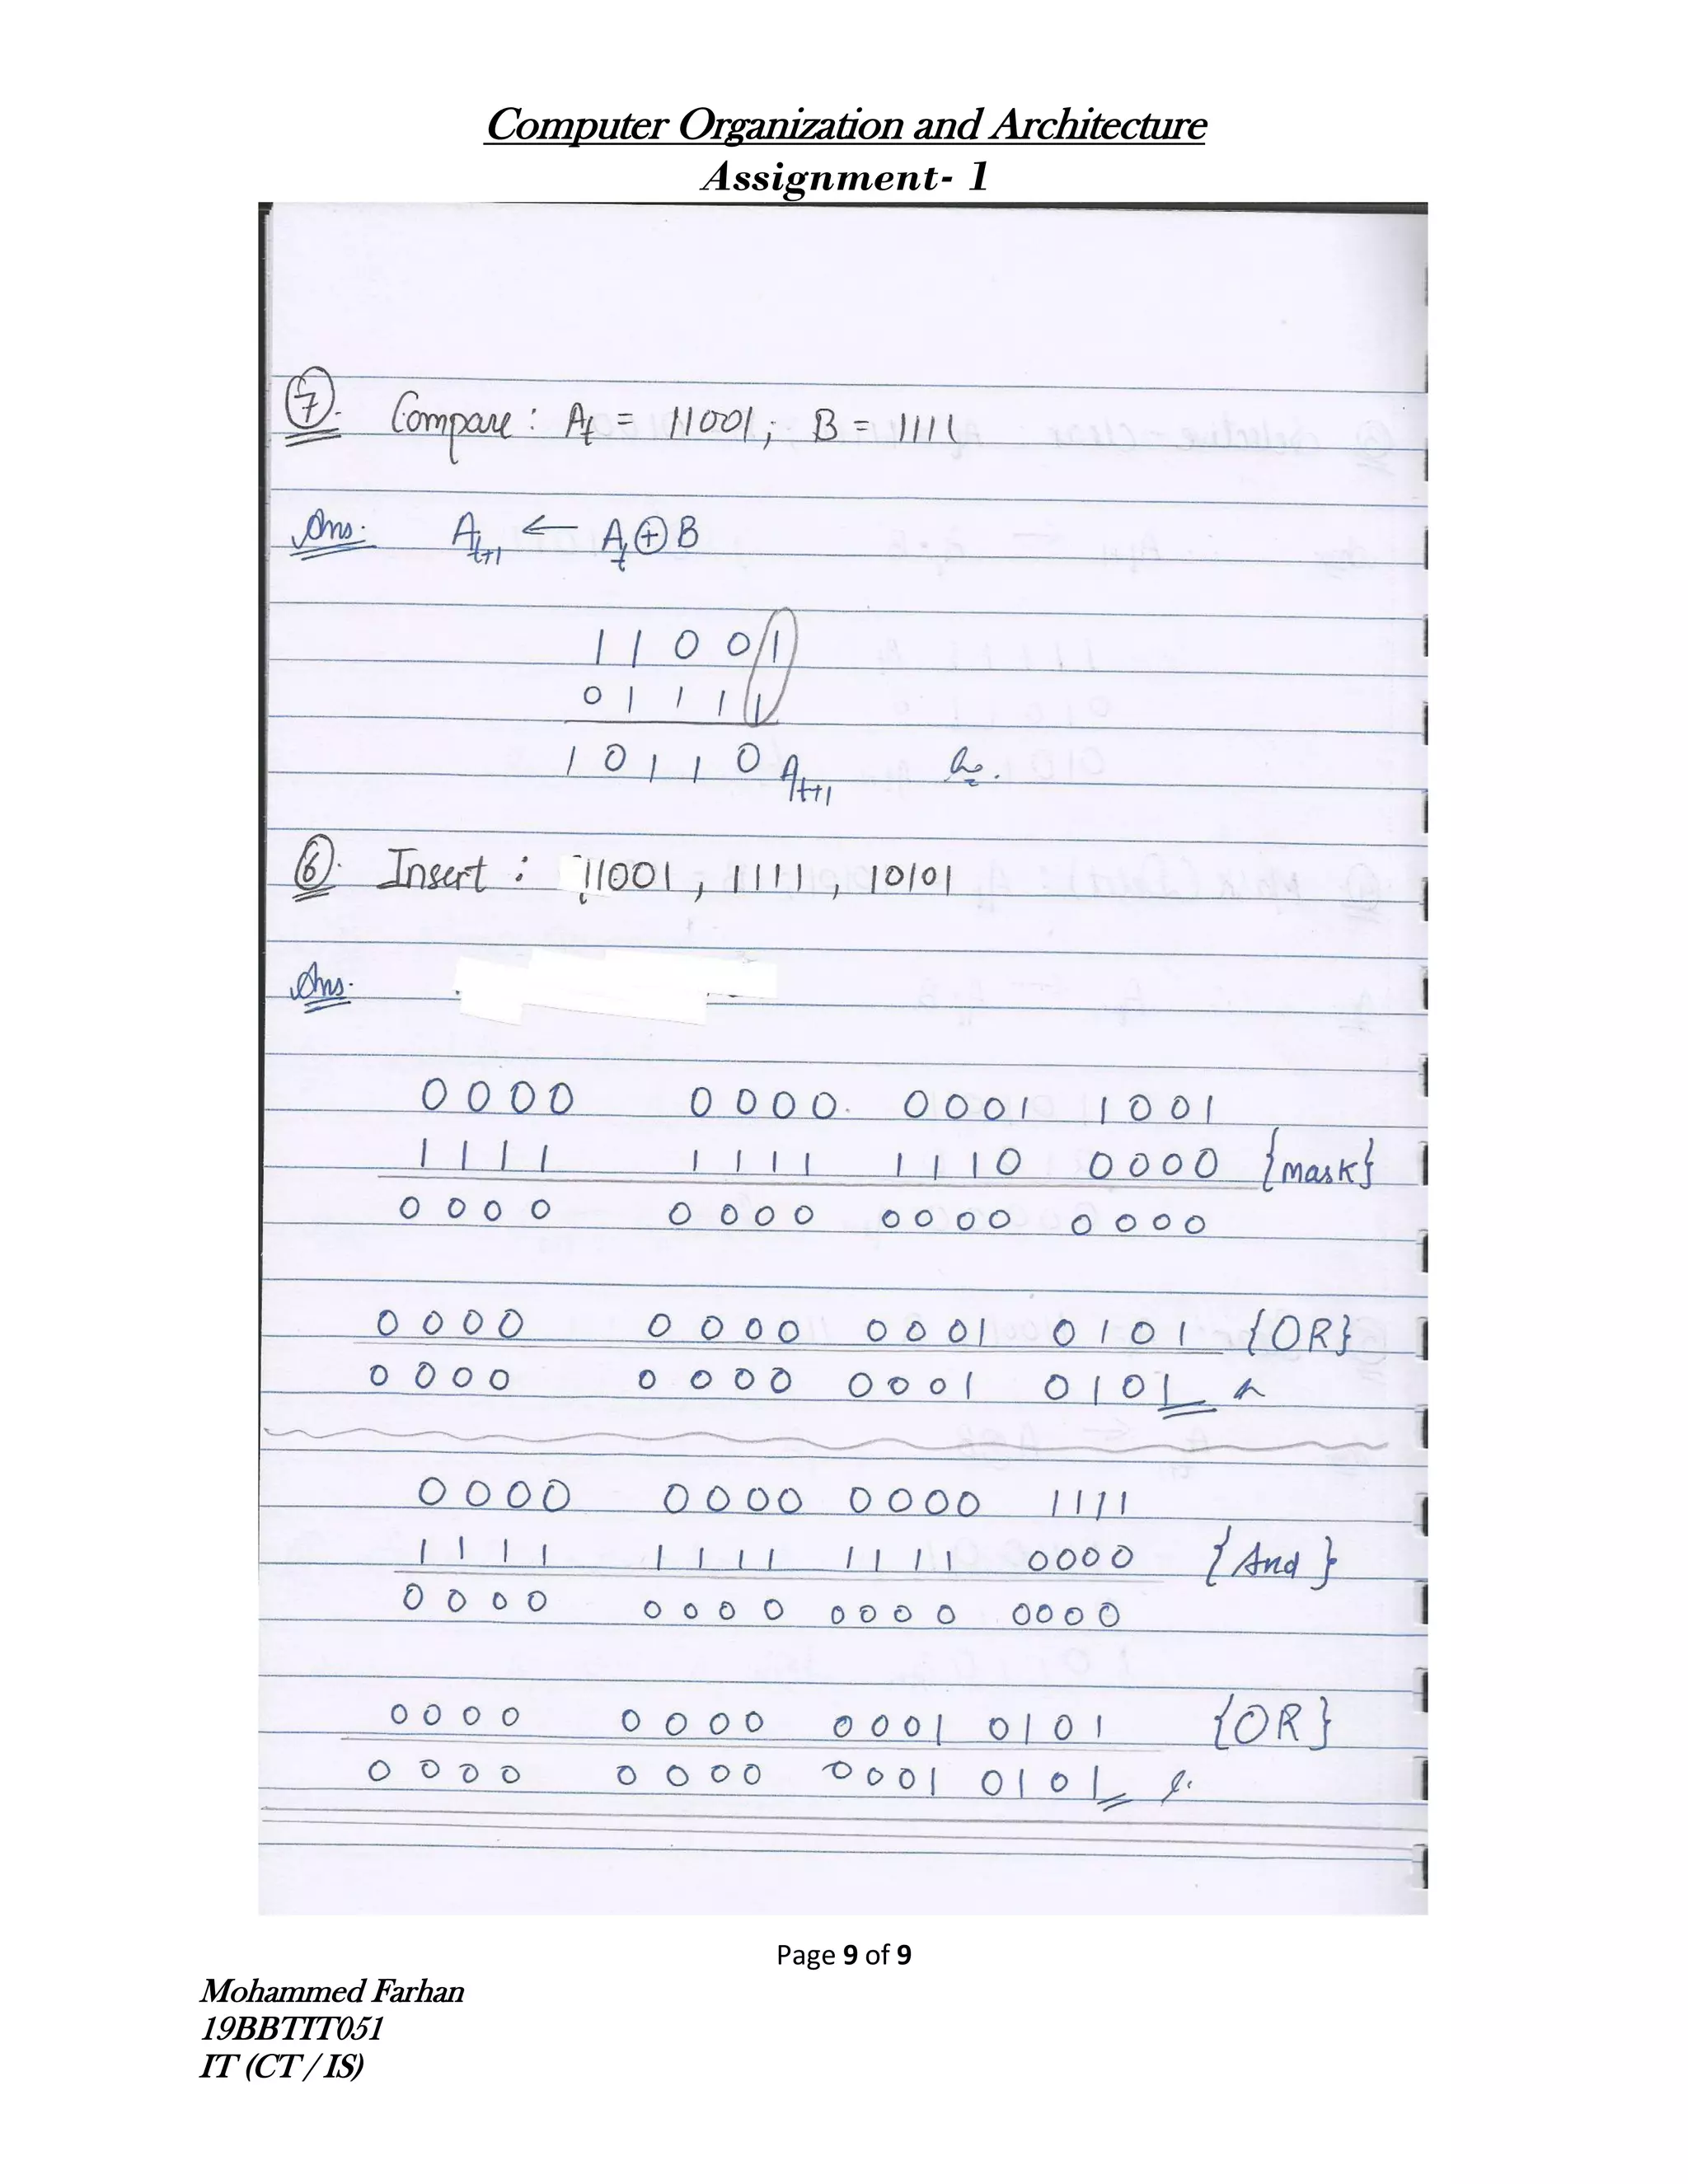 Computer Organization and Architecture
Assignment- 1
7. Compare : At = 11001 ; B = 1111
Ans. At+1 ← At ⊕ B
1 1 0 0 1
0 1 1 1 1
1 0 1 1 0 At+1
6. Insert : 11001 , 1111 , 10101
Ans.
0 0 0 0 0 0 0 0 0 0 0 1 1 0 0 1
1 1 1 1 1 1 1 1 1 1 1 0 0 0 0 0 {mask}
0 0 0 0 0 0 0 0 0 0 0 0 0 0 0 0
0 0 0 0 0 0 0 0 0 0 0 1 0 1 0 1 {OR}
0 0 0 0 0 0 0 0 0 0 0 1 0 1 0 1
0 0 0 0 0 0 0 0 0 0 0 0 1 1 1 1
1 1 1 1 1 1 1 1 1 1 1 1 0 0 0 0 {And}
0 0 0 0 0 0 0 0 0 0 0 0 0 0 0 0
0 0 0 0 0 0 0 0 0 0 0 1 0 1 0 1 {OR}
0 0 0 0 0 0 0 0 0 0 0 1 0 1 0 1
Page 9 of 9
Mohammed Farhan
19BBTIT051
IT (CT / IS)